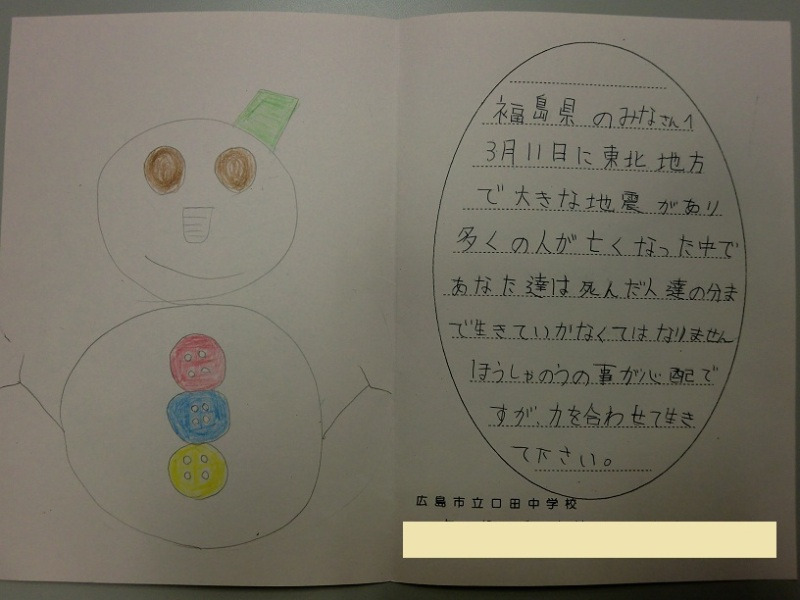 福島県のみなさんへ
3月11日に東北地方
で大きな地震があり
多くの人が亡くなった中で
あなた達は死んだ人達の分ま
で生きていかなくてはなりません
ほうしゃのうの事が心配で
すが、力を合わせて生き
て下さい。
広島市立口田中学校